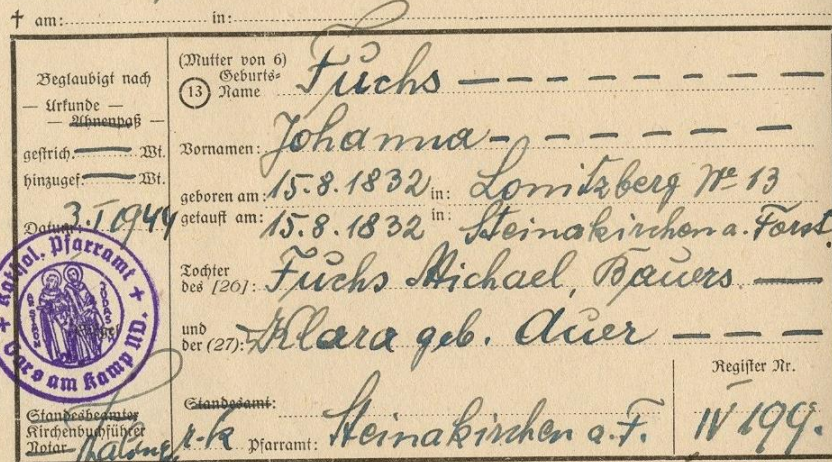 † am: in:
Beglaubigt nach
— Urkunde —
— Ahnenpaß —
gestrich. — Wt.
hinzugef. — Wt.
Datum: 3. I 1944
Kathol. Pfarramt
Gars am Kamp ND.
Standesbeamter
Kirchenbuchführer
Notar
(Mutter von 6)
13 Geburts-Name Fuchs
Vornamen: Johanna
geboren am: 15.8.1832 in: Lonitzberg № 13
getauft am: 15.8.1832 in: Steinakirchen a. Forst
Tochter des [26]: Fuchs Michael, Bauers
und der (27): Klara geb. Auer
Standesamt:
r.-k Pfarramt: Steinakirchen a. F.
Register Nr.
IV 199.